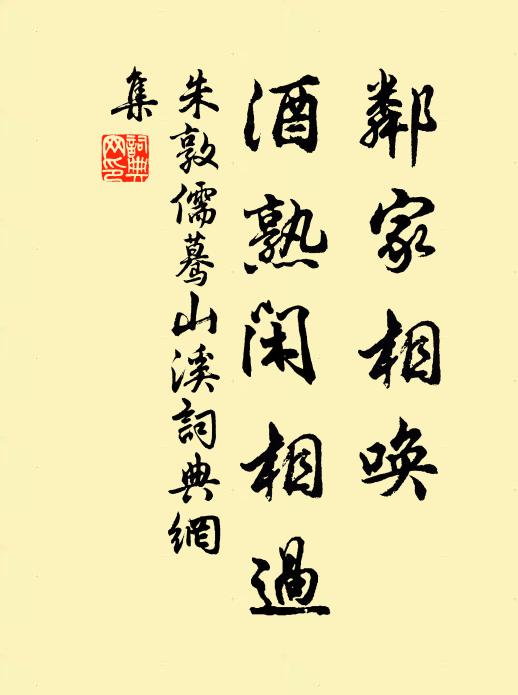 鄰家相喚
酒熟閑相過
朱敦儒驀山溪詞典網
集
詞典
网印